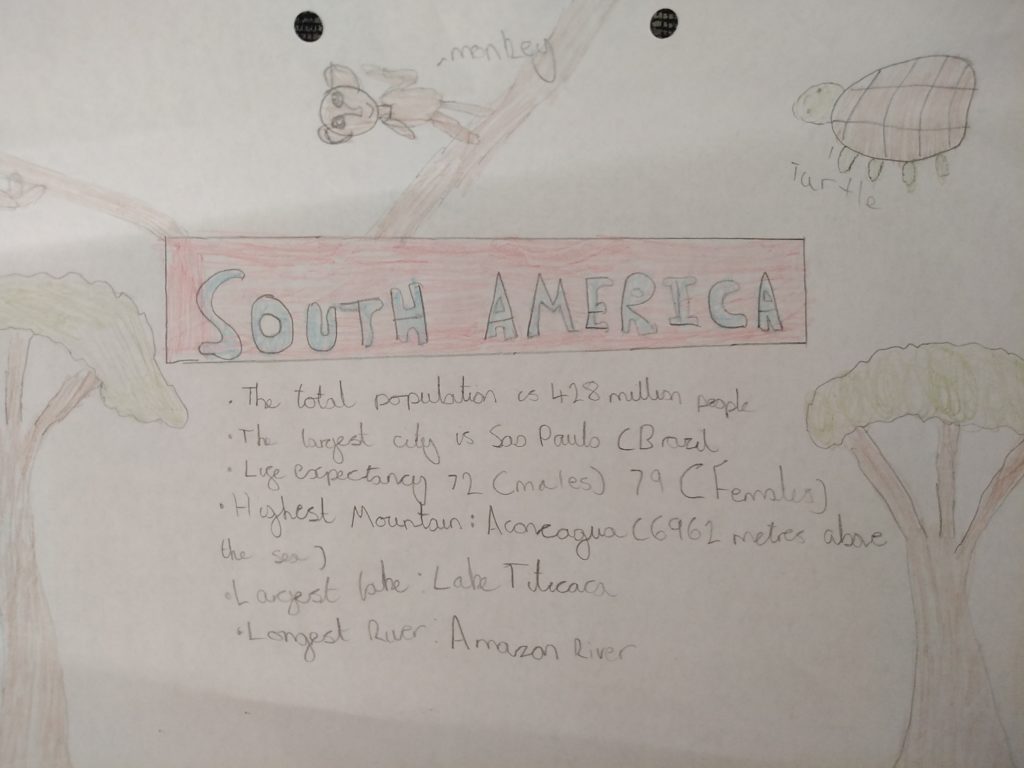 monkey
Turtle
SOUTH AMERICA
. The total population is 428 million people
. The largest city is Sao Paulo (Brazil
. Life expectancy 72 (males) 79 (Females)
. Highest Mountain: Aconcagua (6962 metres above
the sea)
. Largest lake: Lake Titicaca
. Longest River: Amazon River